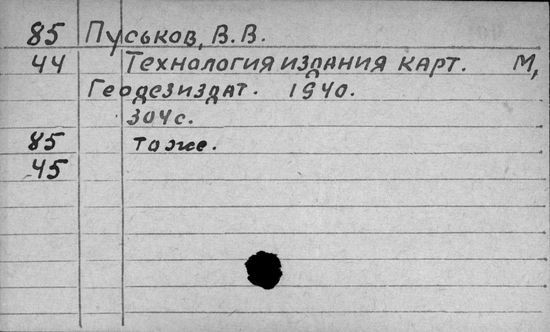 85 Пуськов, В.В.
44 Технология издания карт. М,
Геодезиздат. 1940.
304 с.
85 То же.
45